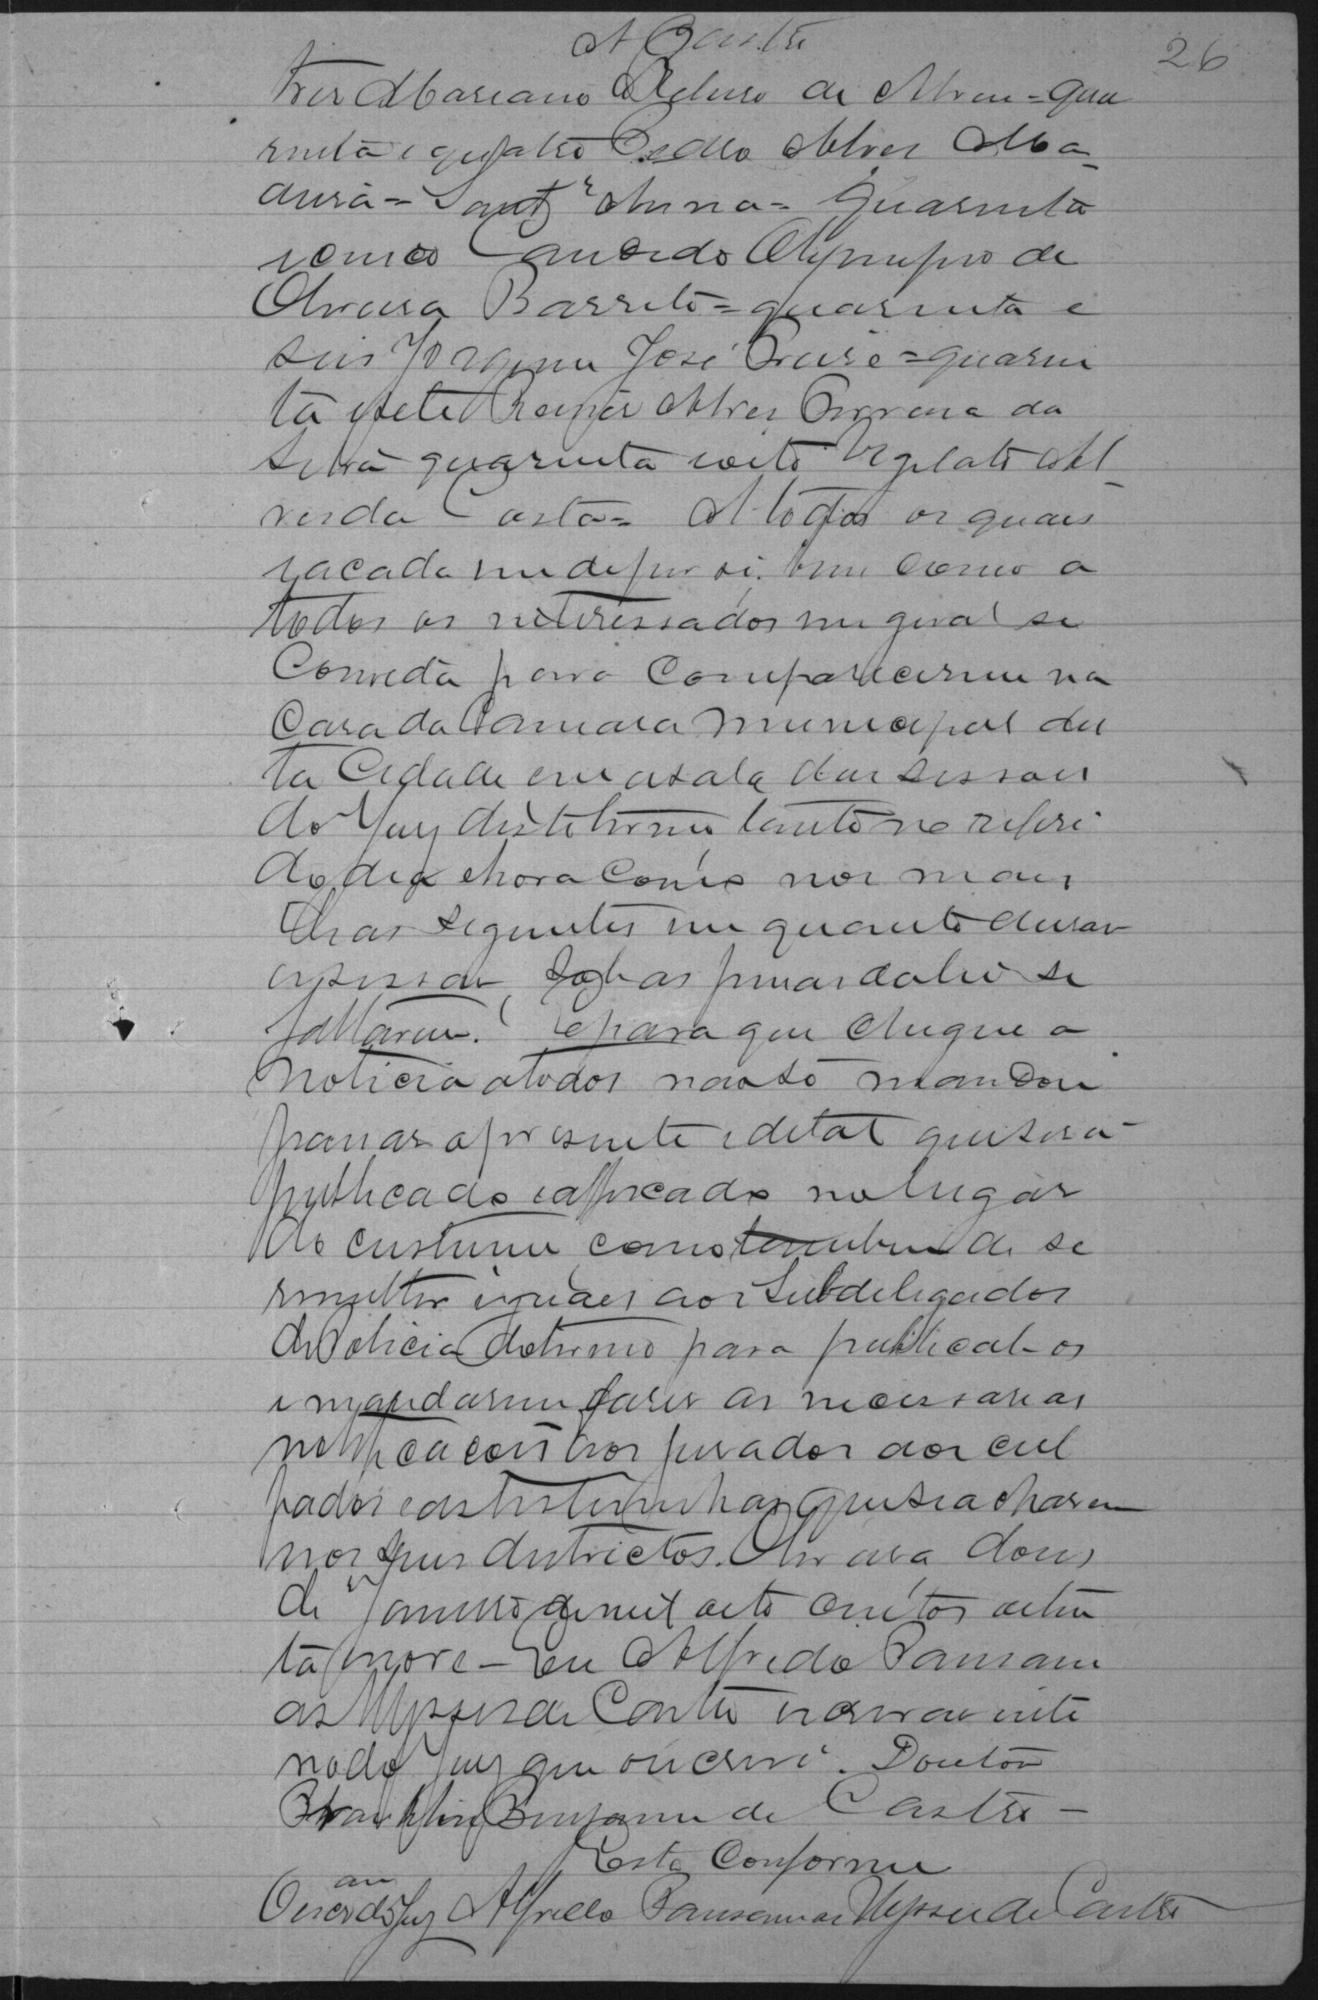 A Castro
26
tres Mariano Veluso de Abreu = qua
renta e quatro Pedro Alves Ma-
dura = Sant'Anna = Quarenta
e cinco Candido Olympio de
Oliveira Barreto = quarenta e
seis Joaquim José = quaren
ta e sete Alves Ferreira da
Silva quarenta e oito Vigilato Al-
ves da Costa = A todos os quaes
e a cada um de per si, bem como a
todos os interessados em geral se
Convida para comparecerem na
Casa da Camara Municipal des
ta Cidade em a sala das sessoes
do Jury deste termo tanto no referi
do dia e hora como nos mais
dias seguintes em quanto durar
a sessao, sob as penas da lei se
faltarem. E para que chegue a
noticia a todos nao só mandou
passar o presente edital que será
publicado e affixado no lugar
do custume como tambem de se
remetter iguaes aos Subdelegados
de Policia do termo para publical-os
e mandarem fazer as necessarias
notificacoes aos jurados aos cul
pados e as testemunhas que se acharem
nos seus districtos. Oliveira dous
de Janeiro de mil oito centos oiten
ta e nove - Eu Alfredo Pausani
as Ulysses de Castro escrivao inte
rino do Jury que o escrevi. Doutor
Franklin Benjamin de Castro -
Está Conforme
O escr.am do Jury Alfredo Pausanias Ulysses de Castro